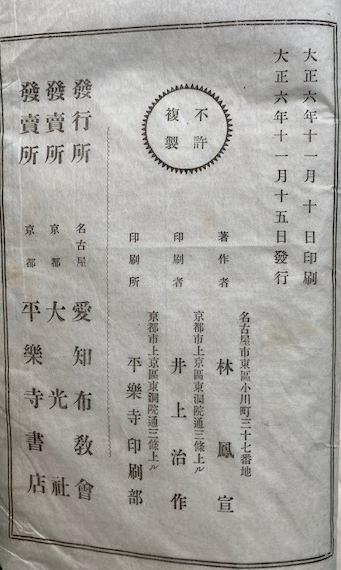 大正六年十一月十日印刷
大正六年十一月十五日發行
不許
複製
名古屋市東區小川町三十七番地
著作者 林鳳宣
京都市上京區東洞院通三條上ル
印刷者 井上治作
京都市上京區東洞院通三條上ル
印刷所 平樂寺印刷部
發行所 名古屋 愛知布教會
發賣所 京都 大光社
發賣所 京都 平樂寺書店